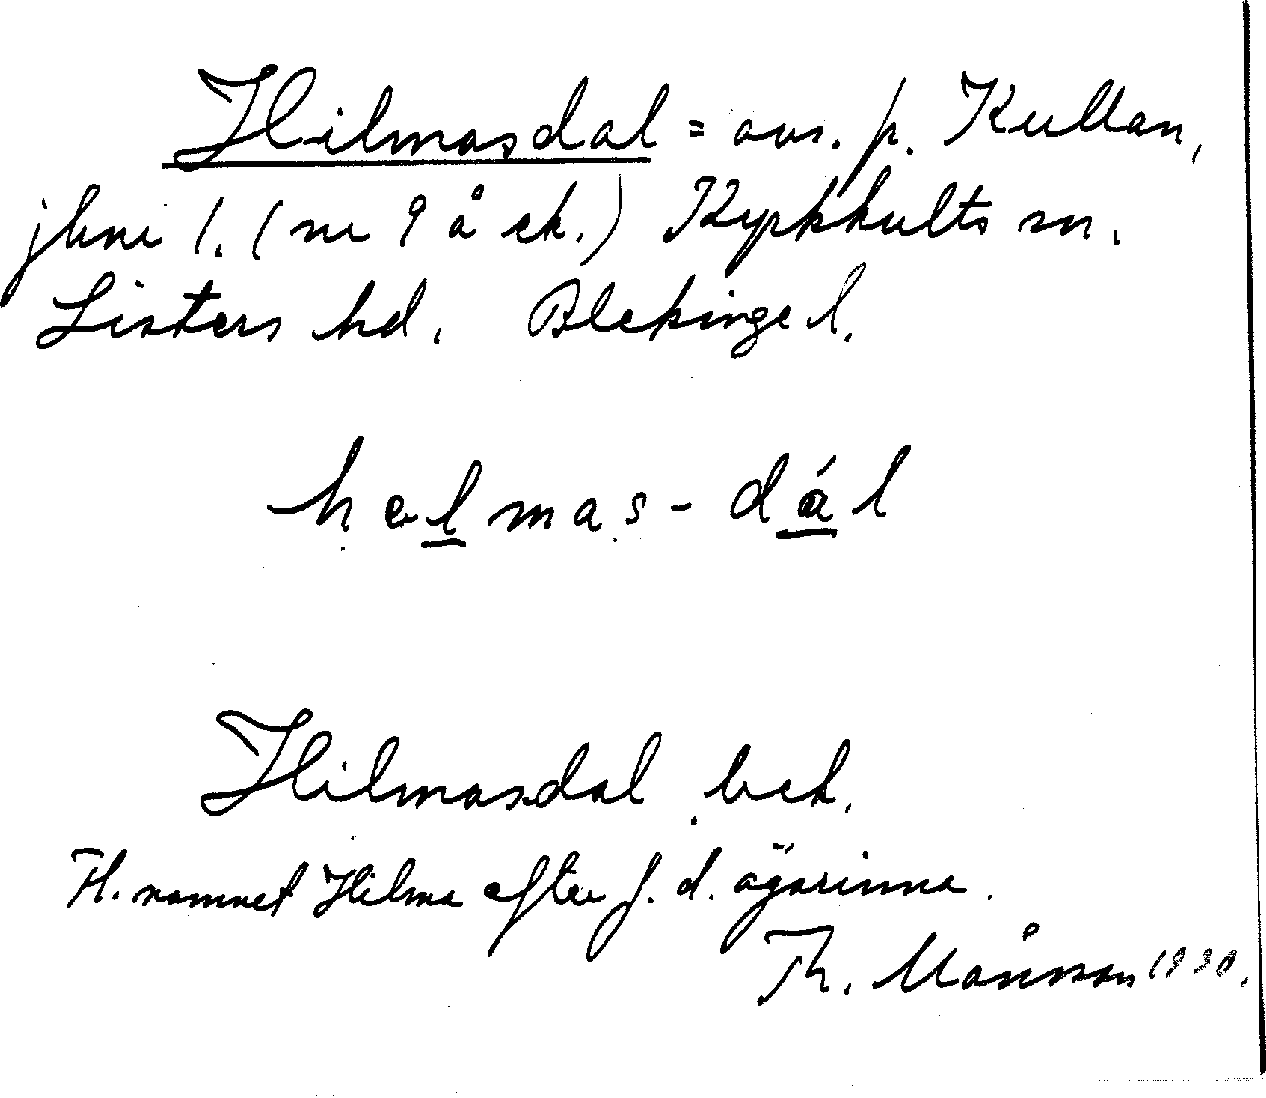 Hilmasdal = avs. p. Kullan,
jbne 1. (nr 9 å ek.) Kyrkhults sn.
Listers hd. Blekinge l.
helmas-dál
Hilmasdal bek.
H. namnet Hilma efter f. d. ägarinna.
Th. Månsson 1930.